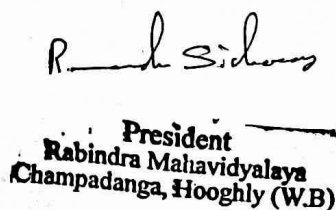 President
Rabindra Mahavidyalaya
Champadanga, Hooghly (W.B)